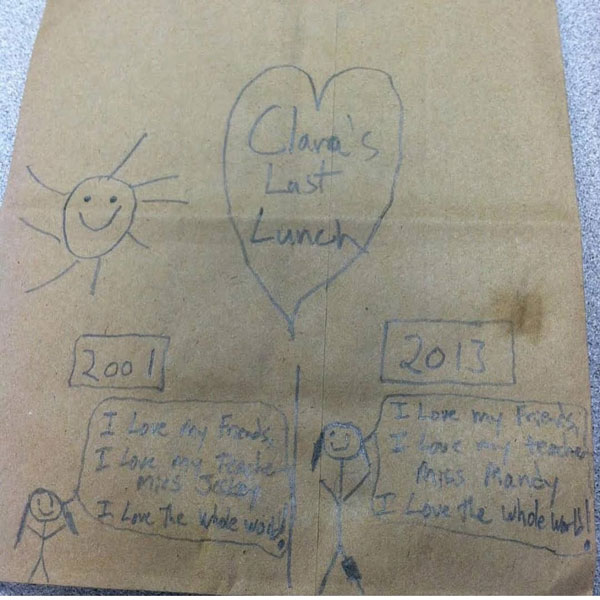 Clara's
Last
Lunch
2001
I Love my Friends,
I Love my Teacher
Miss
I Love The whole world!
2013
I Love my Friends,
I Love my teacher
Miss Mandy
I Love the whole world!